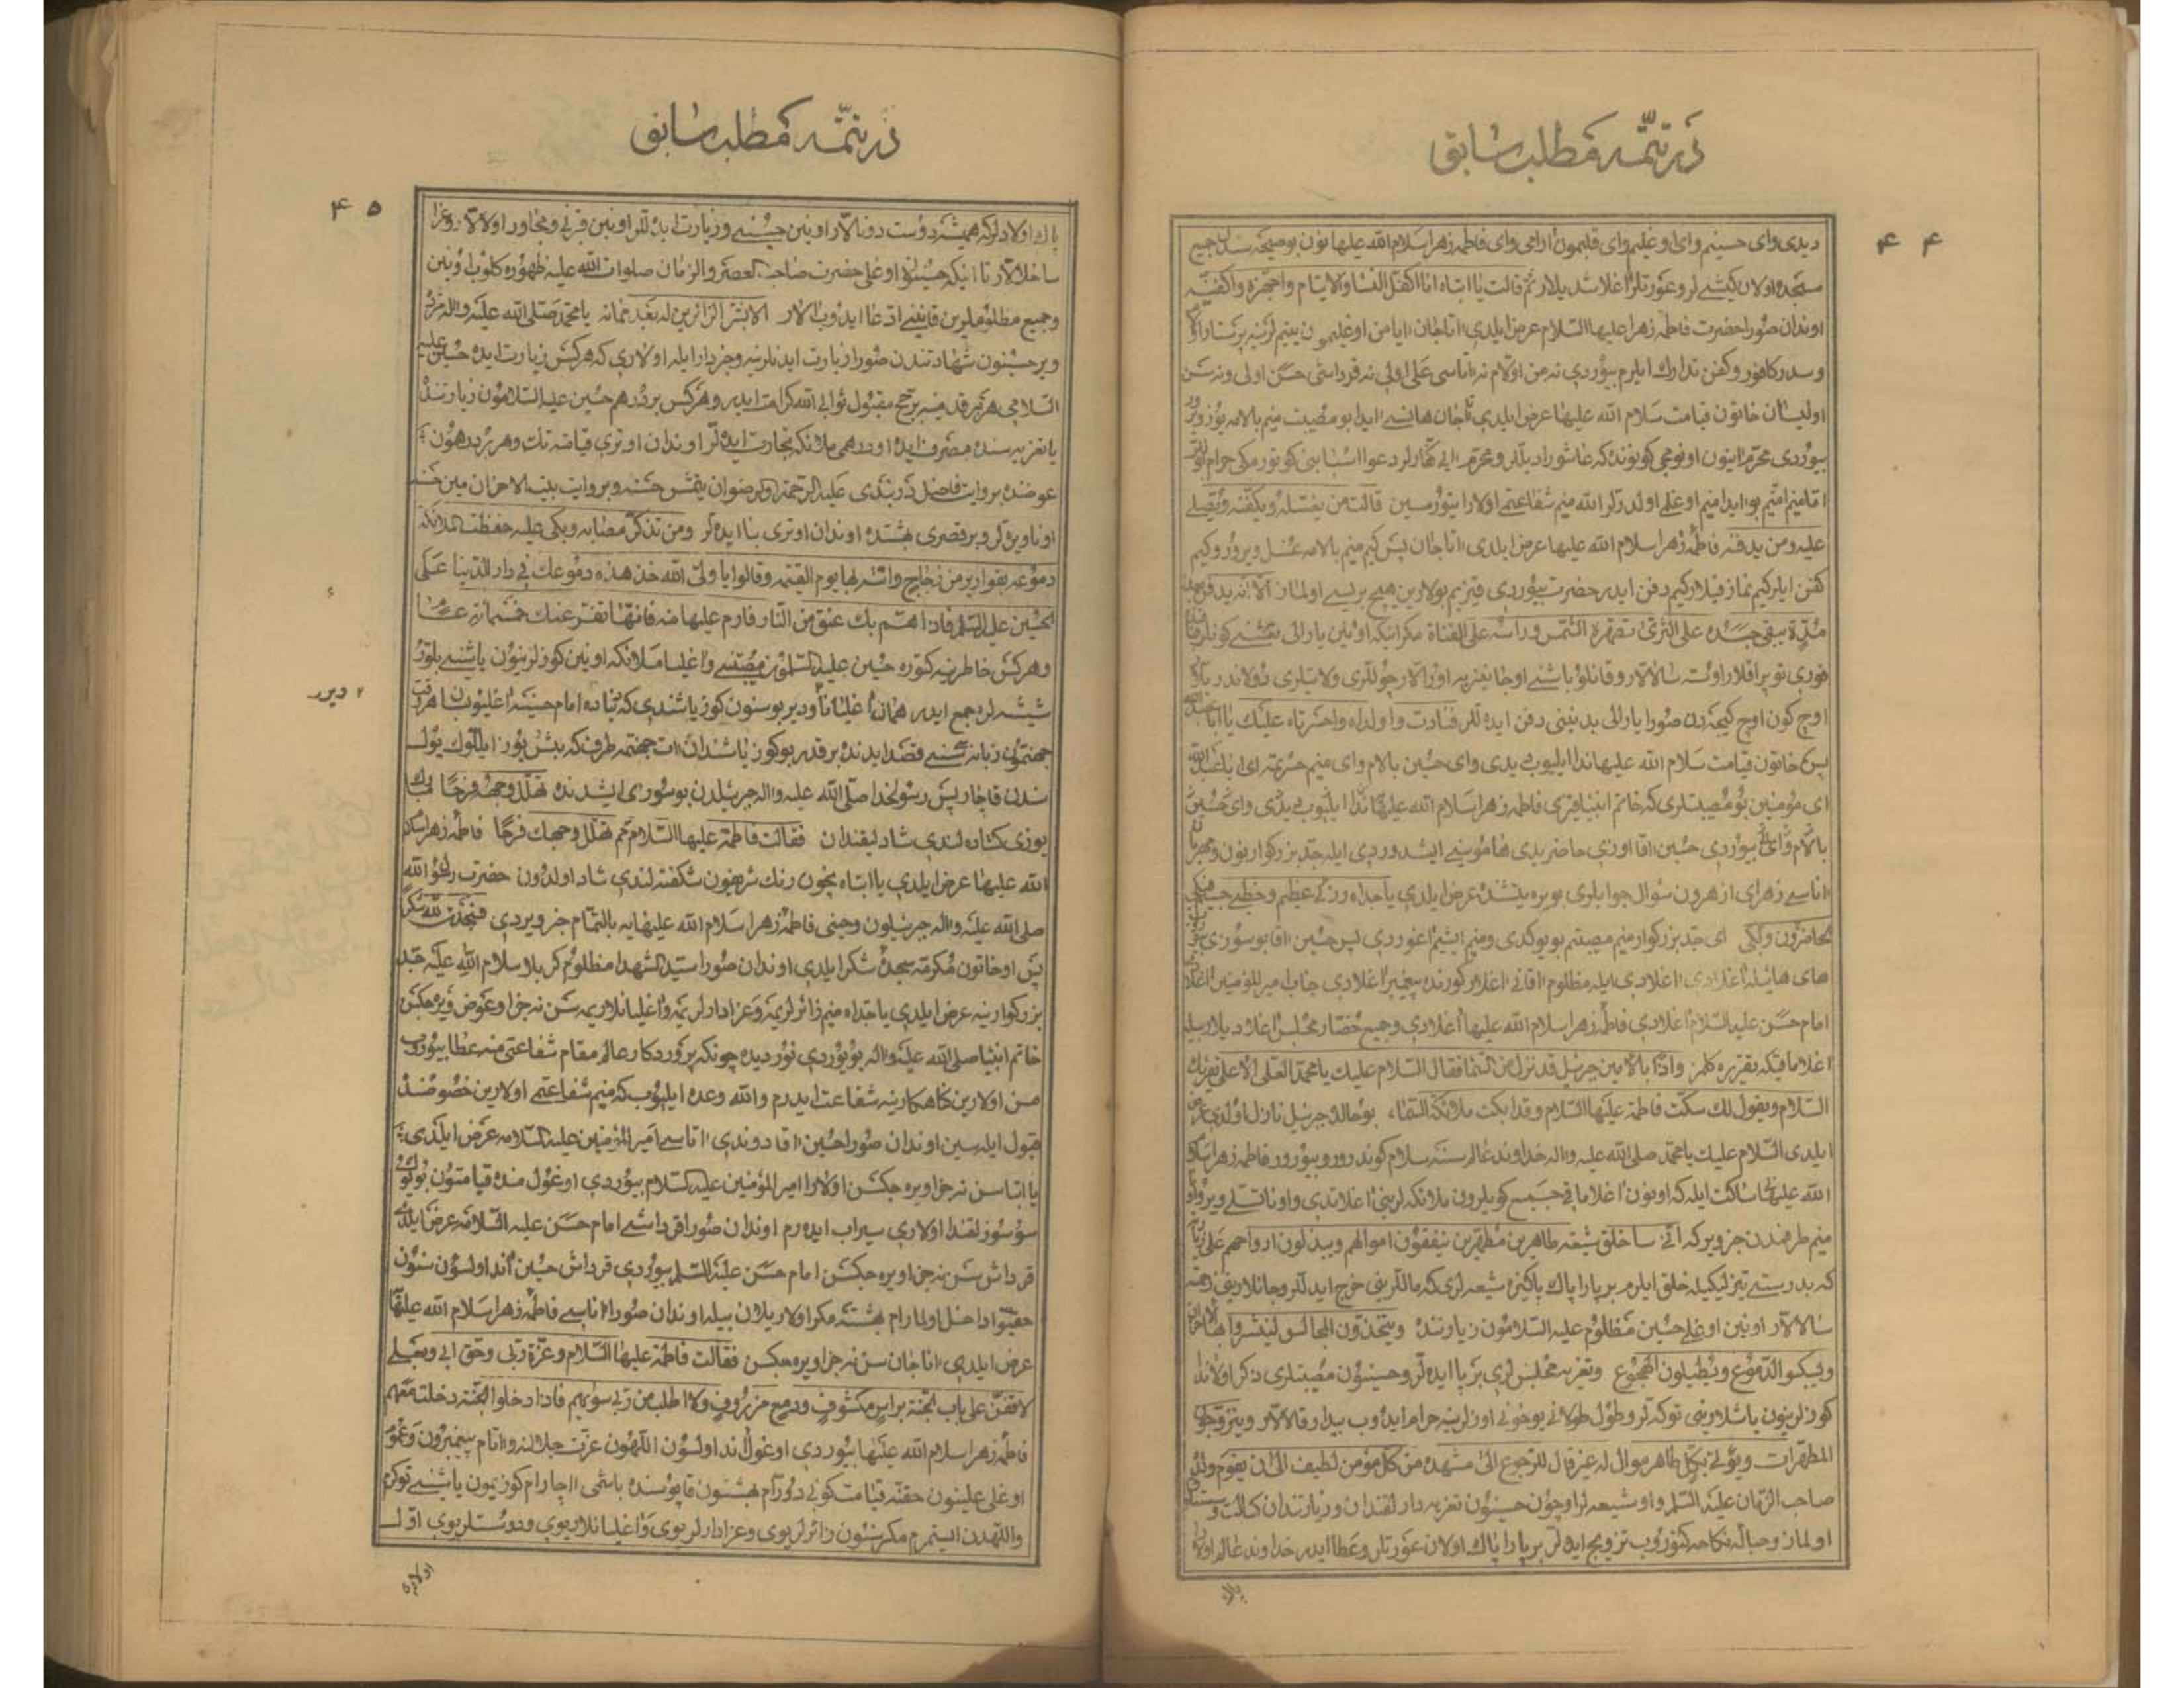 در تتمّه مطلب سابق
۴۴
دیدی وای حسینیم وای اوغلیم وای قلبمون آرامی وای فاطمه زهرا سلام الله علیها نون بو صیحه سندن جمیع
مسجده اولان کیشی لر و عورتلر آغلاشدیلار ثم قالت یا ابتاه انا اکفل النساء والایتام واجهزه واکفنه
اوندان صورا حضرت فاطمه زهرا علیها السلام عرض ایلدی آتا جان ایا من اوغلیمون یتیم لرینه پرستار
وسدر کافور وکفن تدارک ایلرم بیوردی نه من اولام نه آتاسی علی اولی نه قرداشی حسن اولی ونه سن
اولیسان خاتون قیامت سلام الله علیها عرض ایلدی آتا جان هانسی آیدا بو مصیبت منیم بالامه یوز ویرور
بیوردی محرم آیینون اونومجی کونونده که عاشورا دیللر ومحرم
اقا منیم امتیم بو آیدا منیم اوغلی اولدرللر الله منیم شفاعتمی اولارا یتورمسین قالت من یغسله ویکفنه ویصلی
علیه ومن یدفنه فاطمه زهرا سلام الله علیها عرض ایلدی آتا جان پس کیم منیم بالامه غسل ویرور وکیم
کفن ایلر کیم نماز قیلار کیم دفن ایدر حضرت بیوردی قیزیم بولارین هیچ بریسی اولماز
یبقی جسده علی الثری تصهره الشمس وراسه علی القناة مکر اینکه اونین یارالی نعشی کونلر
قوری توپراقلار اوسته سالالار وقانلو باشنی اوجا نیزیه اورالار
اوچ کون اوچ کیجه دن صورا یارالی بدنینی دفن ایده لر فنادت وا ولداه واحسرتاه علیک یا ابا عبدالله
پس خاتون قیامت سلام الله علیها ندا ایلیوب دیدی وای حسین بالام وای منیم
ای مؤمنین بو مصیبتلری که خاتم انبیا قزی فاطمه زهرا سلام الله علیها ندا ایلیوب دیدی وای حسین
بالام وای بیوردی حسین آقا اوزی حاضریدی هاموسینی ایشدوردی ایله جد بزرکوارینون
آناسی زهرای ازهرون سؤال جوابلری بویره یتشنده عرض ایلدی یا جداه
ای جد بزرکوار منیم مصیبتم بویوکدی ومنیم ایشیم آغوردی پس حسین آقا بو سوزی
های هایله آغلادی آغلادی ایله مظلوم آقانی آغلار کورنده پیغمبر آغلادی جناب امیرالمؤمنین آغلادی
امام حسن علیه السلام آغلادی فاطمه زهرا سلام الله علیها آغلادی وجمیع حضار مجلس آغلادیلار بیله
آغلاماقیکه تقریره کلمز واذا بالامین جبرئیل قد نزل من السماء فقال السلام علیک یا محمد العلی الاعلی یقرئک
السلام ویقول لک سکت فاطمة علیها السلام وقد ابکت ملائکة السماء، بو حالده جبرئیل نازل اولدی عرض
ایلدی السلام علیک یا محمد صلی الله علیه واله خداوند عالم سنه سلام کوندرور وبیورور فاطمه زهرا سلام
الله علیها نی ساکت ایله که اونون آغلاماقی جمیع کویلرون ملائکه لرینی آغلاتدی واونا تسلی ویر
منیم طرفمدن خبر ویر که انی ساخلق شیعه طاهرین مطهرین ینفقون اموالهم ویبذلون ارواحهم علی
که بدرستی تیزلیکیله خلق ایلرم بر پارا پاک پاکیزه شیعه لری که ماللرینی خرج ایدللر وجانلارینی زحمته
سالالار اونین اوغلی حسین مظلوم علیه السلامون زیارتنده ویتخذون المجالس لینشروا
ویسکبو الدموع ویطیلون الهجوع وتعزیه مجلس لری برپا ایده لر وحسینون مصیبتلری ذکر اولاندا
کوزلرینون یاشلارینی توکه لر وطول طولانی یوخونی اوزلرینه حرام ایدوب بیدار قالالار ویتزوجون
المطهرات ویؤلی بکل طاهر موال له غیر قال للرجوع الی مشهده من کل مؤمن لطیف الی ان یقوم ولده
صاحب الزمان علیه السلم واو شیعه لر اوچون حسینون تعزیه دارلقندان وزیارتندان کسالت وسستلیق
اولماز وحباله نکاحه کتوروب تزویج ایده لر بر پارا پاک اولان عورتلر وعطا ایدر خداوند عالم اولارا
پاک
در تتمّه مطلب سابق
۴۵
پاک اولادلر که همیشه دوست دوتالار اونین حسینی وزیارت ایده لر اونین قبرنی ومجاور اولالار
ساخلالار تا اینکه حسینون اوغلی حضرت صاحب العصر والزمان صلوات الله علیه ظهوره کلوب اونین
وجمیع مظلوملرین قانینی ادعا ایدوب آلار الا بشر الزائرین له بعد مماته یا محمد صلی الله علیه واله مژده
ویر حسینون شهادتندن صورا زیارت ایدنلرینه وخبردار ایله اولاری که هر کس زیارت ایده حسین علیه
السلامی هر بر قدمینه بر حج مقبول ثوابی الله کرامت ایدر وهر کس بر درهم حسین علیه السلامون زیارتنده
یا تعزیه سنده مصرف ایده او درهمی ملائکه تجارت ایده لر اوندان اوتری قیامته تک وهر بر درهمون
عوضنده بروایت فاضل دربندی علیه الرحمة والرضوان یتمش حسنه وبروایت بیت الاحزان مین حسنه
اونا ویره لر وبر قصری بهشتده اوندان اوتری بنا ایده لر ومن تذکر مصابه وبکی علیه حفظت الملائکة
دموعه بقواریر من زجاج واتته بها یوم القیمة وقالوا یا ولی الله خذ هذه دموعک فی دار الدنیا علی
الحسین علیه السلم فاذا اهتم بک عنق من النار فارم علیها منه فانها تفر عنک
وهر کس خاطرینه کتوره حسین علیه السلامون مصیبتنی وآغلیا ملائکه اونین کوزلرینون یاشنی بلور
۲ دیرر
شیشه لرده جمع ایدر همان آغلیانا دیر بو سنون کوز یاشندی که دنیاده امام حسینه آغلیوبان هر وقت
جهنمون زبانه سی سنی قصد ایدنده بر قدر بو کوز یاشندان آت جهنمه طرف که بش یوز ایللوک یول
سندن قاچار پس رسول خدا صلی الله علیه واله جبرئیلدن بو سوزی ایشدنده تهلل وجهه فرحا مبارک
یوزی کشاده لندی شادلیقندان فقالت فاطمة علیها السلام مم تهلل وجهک فرحا فاطمه زهرا سلام
الله علیها عرض ایلدی یا ابتاه نچون رنک شریفون شکفته لندی شاد اولدون حضرت رسول الله
صلی الله علیه واله جبرئیلون وحینی فاطمه زهرا سلام الله علیهایه بالتمام خبر ویردی فسجدت لله شکرا
پس او خاتون مکرمه سجده شکر ایلدی اوندان صورا سید الشهدا مظلوم کربلا سلام الله علیه جد
بزرکوارینه عرض ایلدی یا جداه منیم زائرلریمه وعزادارلریمه وآغلیانلاریمه سن نه جزا وعوض ویره جکسن
خاتم انبیا صلی الله علیه واله بویوردی نور دیده چونکه پروردکار عالم مقام شفاعتی منه عطا بیوروب
من اولارین کناهکارینه شفاعت ایدرم والله وعده ایلیوب که منیم شفاعتمی اولارین خصوصنده
قبول ایله سین اوندان صورا حسین آقا دوندی آتاسی امیر المؤمنین علیه السلامه عرض ایلدی
یا ابتا سن نه جزا ویره جکسن اولارا امیر المؤمنین علیه السلام بیوردی اوغول منده قیامتون
سوسوزلقندا اولاری سیراب ایده رم اوندان صورا قرداشی امام حسن علیه السلامه عرض ایلدی
قرداش سن نه جزا ویره جکسن امام حسن علیه السلم بیوردی قرداش حسین آند اولسون سنون
حقیوا داخل اولمارام بهشته مکر اولاریلان بیله اوندان صورا آناسی فاطمه زهرا سلام الله علیها
عرض ایلدی آنا جان سن نه جزا ویره جکسن فقالت فاطمة علیها السلام وعزة ربی وحق ابی وبعلی
لاقفن علی باب الجنة براس مکشوف ودمع مزروف ولا اطلب من ربی سویهم فاذا دخلوا الجنة دخلت معهم
فاطمه زهرا سلام الله علیها بیوردی اوغول آند اولسون اللهون عزت جلالنه وآتام پیغمبرون وعمو
اوغلی علینون حقنه قیامت کونی دورارام بهشتون قاپوسنده باشمی آچارام کوزیمون یاشنی توکرم
واللهدن ایستمرم مکر سنون زائرلریوی وعزادارلریوی وآغلیانلاریوی ودوستلریوی اول
اولاری